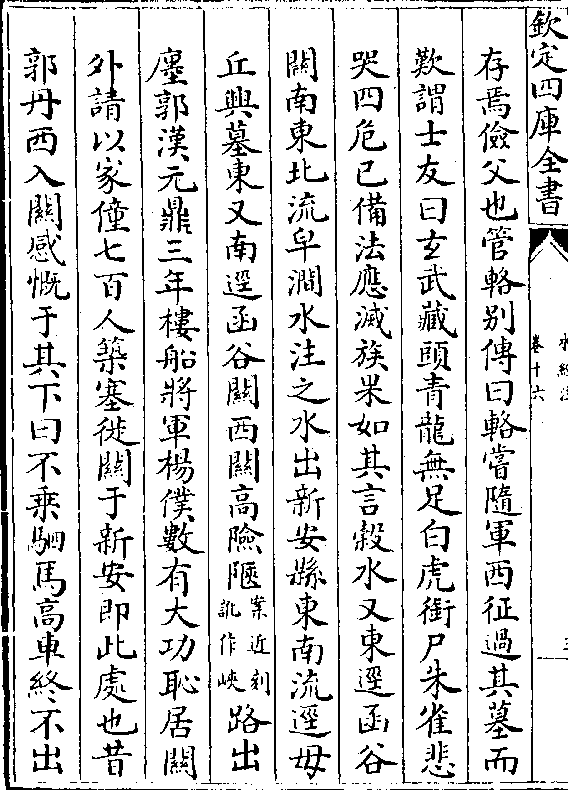 欽定四庫全書
水經注
卷十六
存焉儉父也管輅别傳曰輅嘗隨軍西征過其墓而
歎謂士友曰玄武藏頭青龍無足白虎銜尸朱雀悲
哭四危已備法應滅族果如其言榖水又東逕函谷
關南東北流皁澗水注之水出新安縣東南流逕毋
丘興墓東又南逕函谷關西關高險陿案近刻訛作峽路出
廛郭漢元鼎三年樓船將軍楊僕數有大功恥居關
外請以家僮七百人築塞徙關于新安即此處也昔
郭丹西入關感慨于其下曰不乘駟馬高車終不出